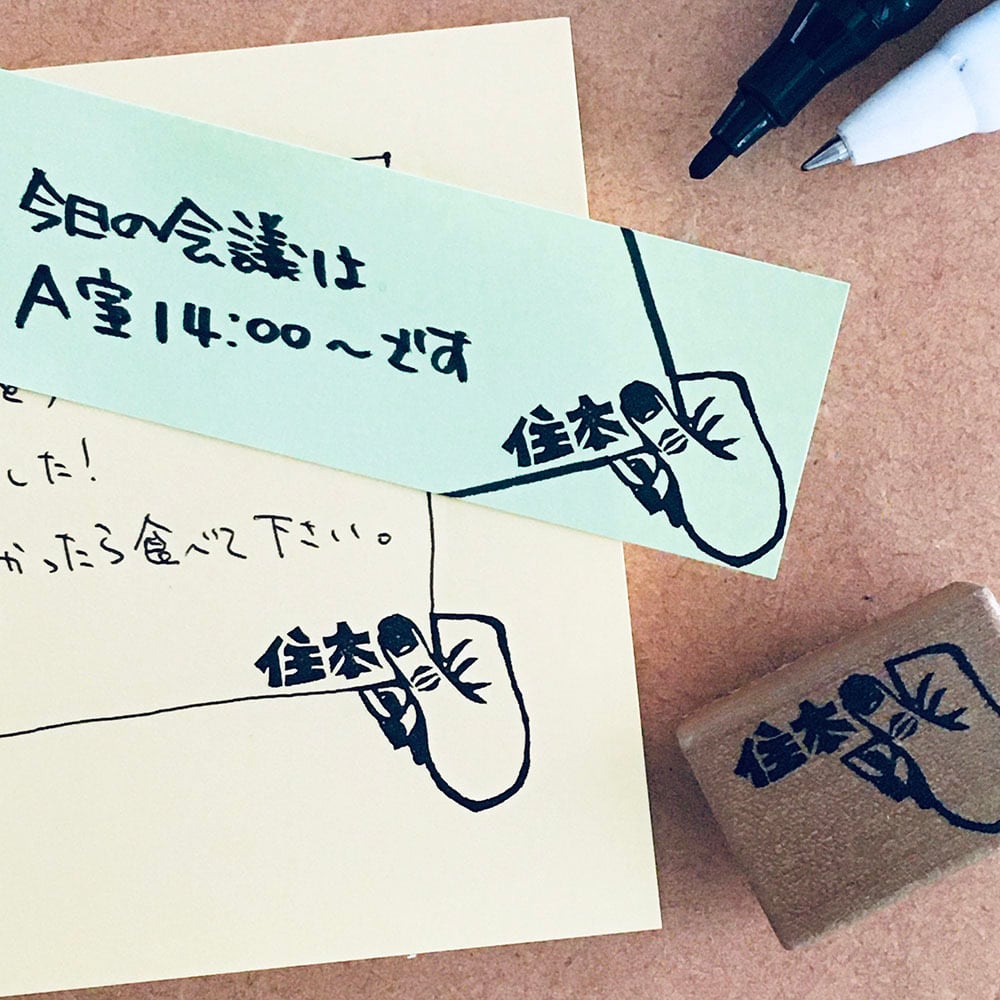 今日の会議は
A室14:00～です
住本
した!
かったら食べて下さい。
住本
住本